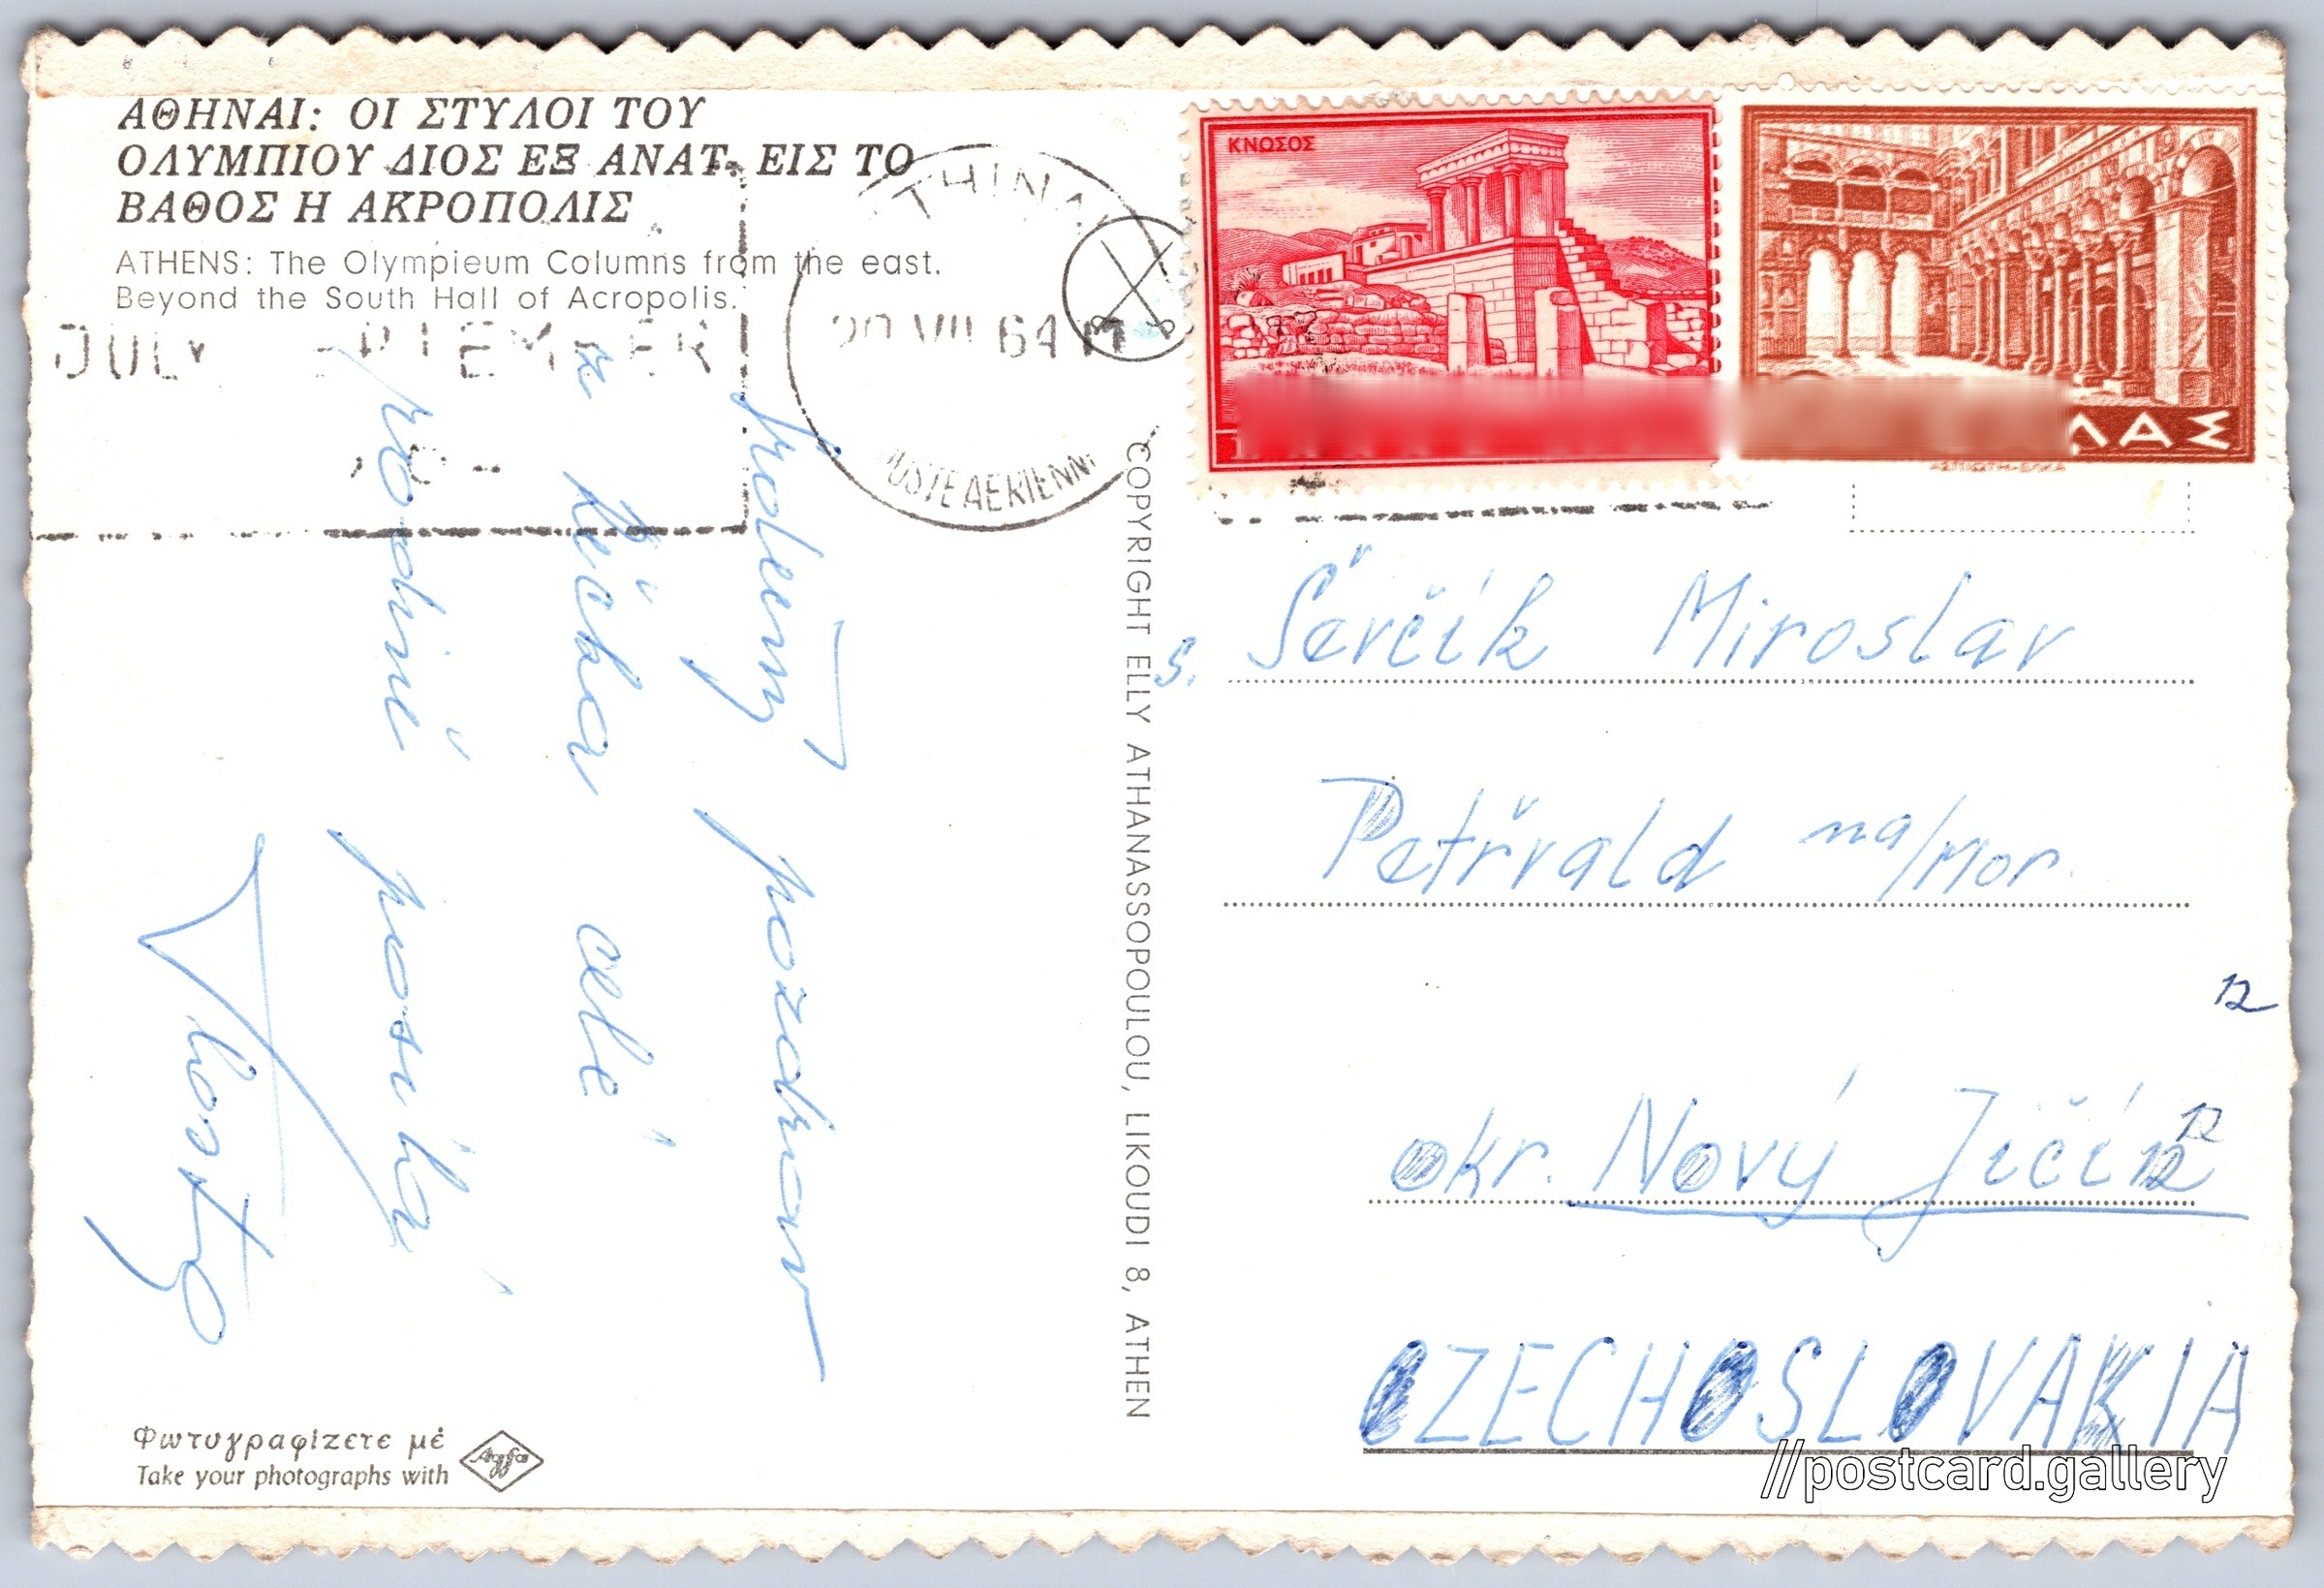 ΑΘΗΝΑΙ: ΟΙ ΣΤΥΛΟΙ ΤΟΥ
ΟΛΥΜΠΙΟΥ ΔΙΟΣ ΕΞ ΑΝΑΤ. ΕΙΣ ΤΟ
ΒΑΘΟΣ Η ΑΚΡΟΠΟΛΙΣ
ATHENS: The Olympieum Columns from the east.
Beyond the South Hall of Acropolis.
JULY
VII 64
ΚΝΩΣΟΣ
ΛΑΣ
COPYRIGHT ELLY ATHANASSOPOULOU, LIKOUDI 8, ATHEN
Srdečný pozdrav
z Řecka celé
rodině posílá
Vlasta
S. Ševčík Miroslav
Petřvald na/Mor.
12
okr. Nový Jičín
12
CZECHOSLOVAKIA
Φωτογραφίζετε μέ
Take your photographs with
Agfa
//postcard.gallery